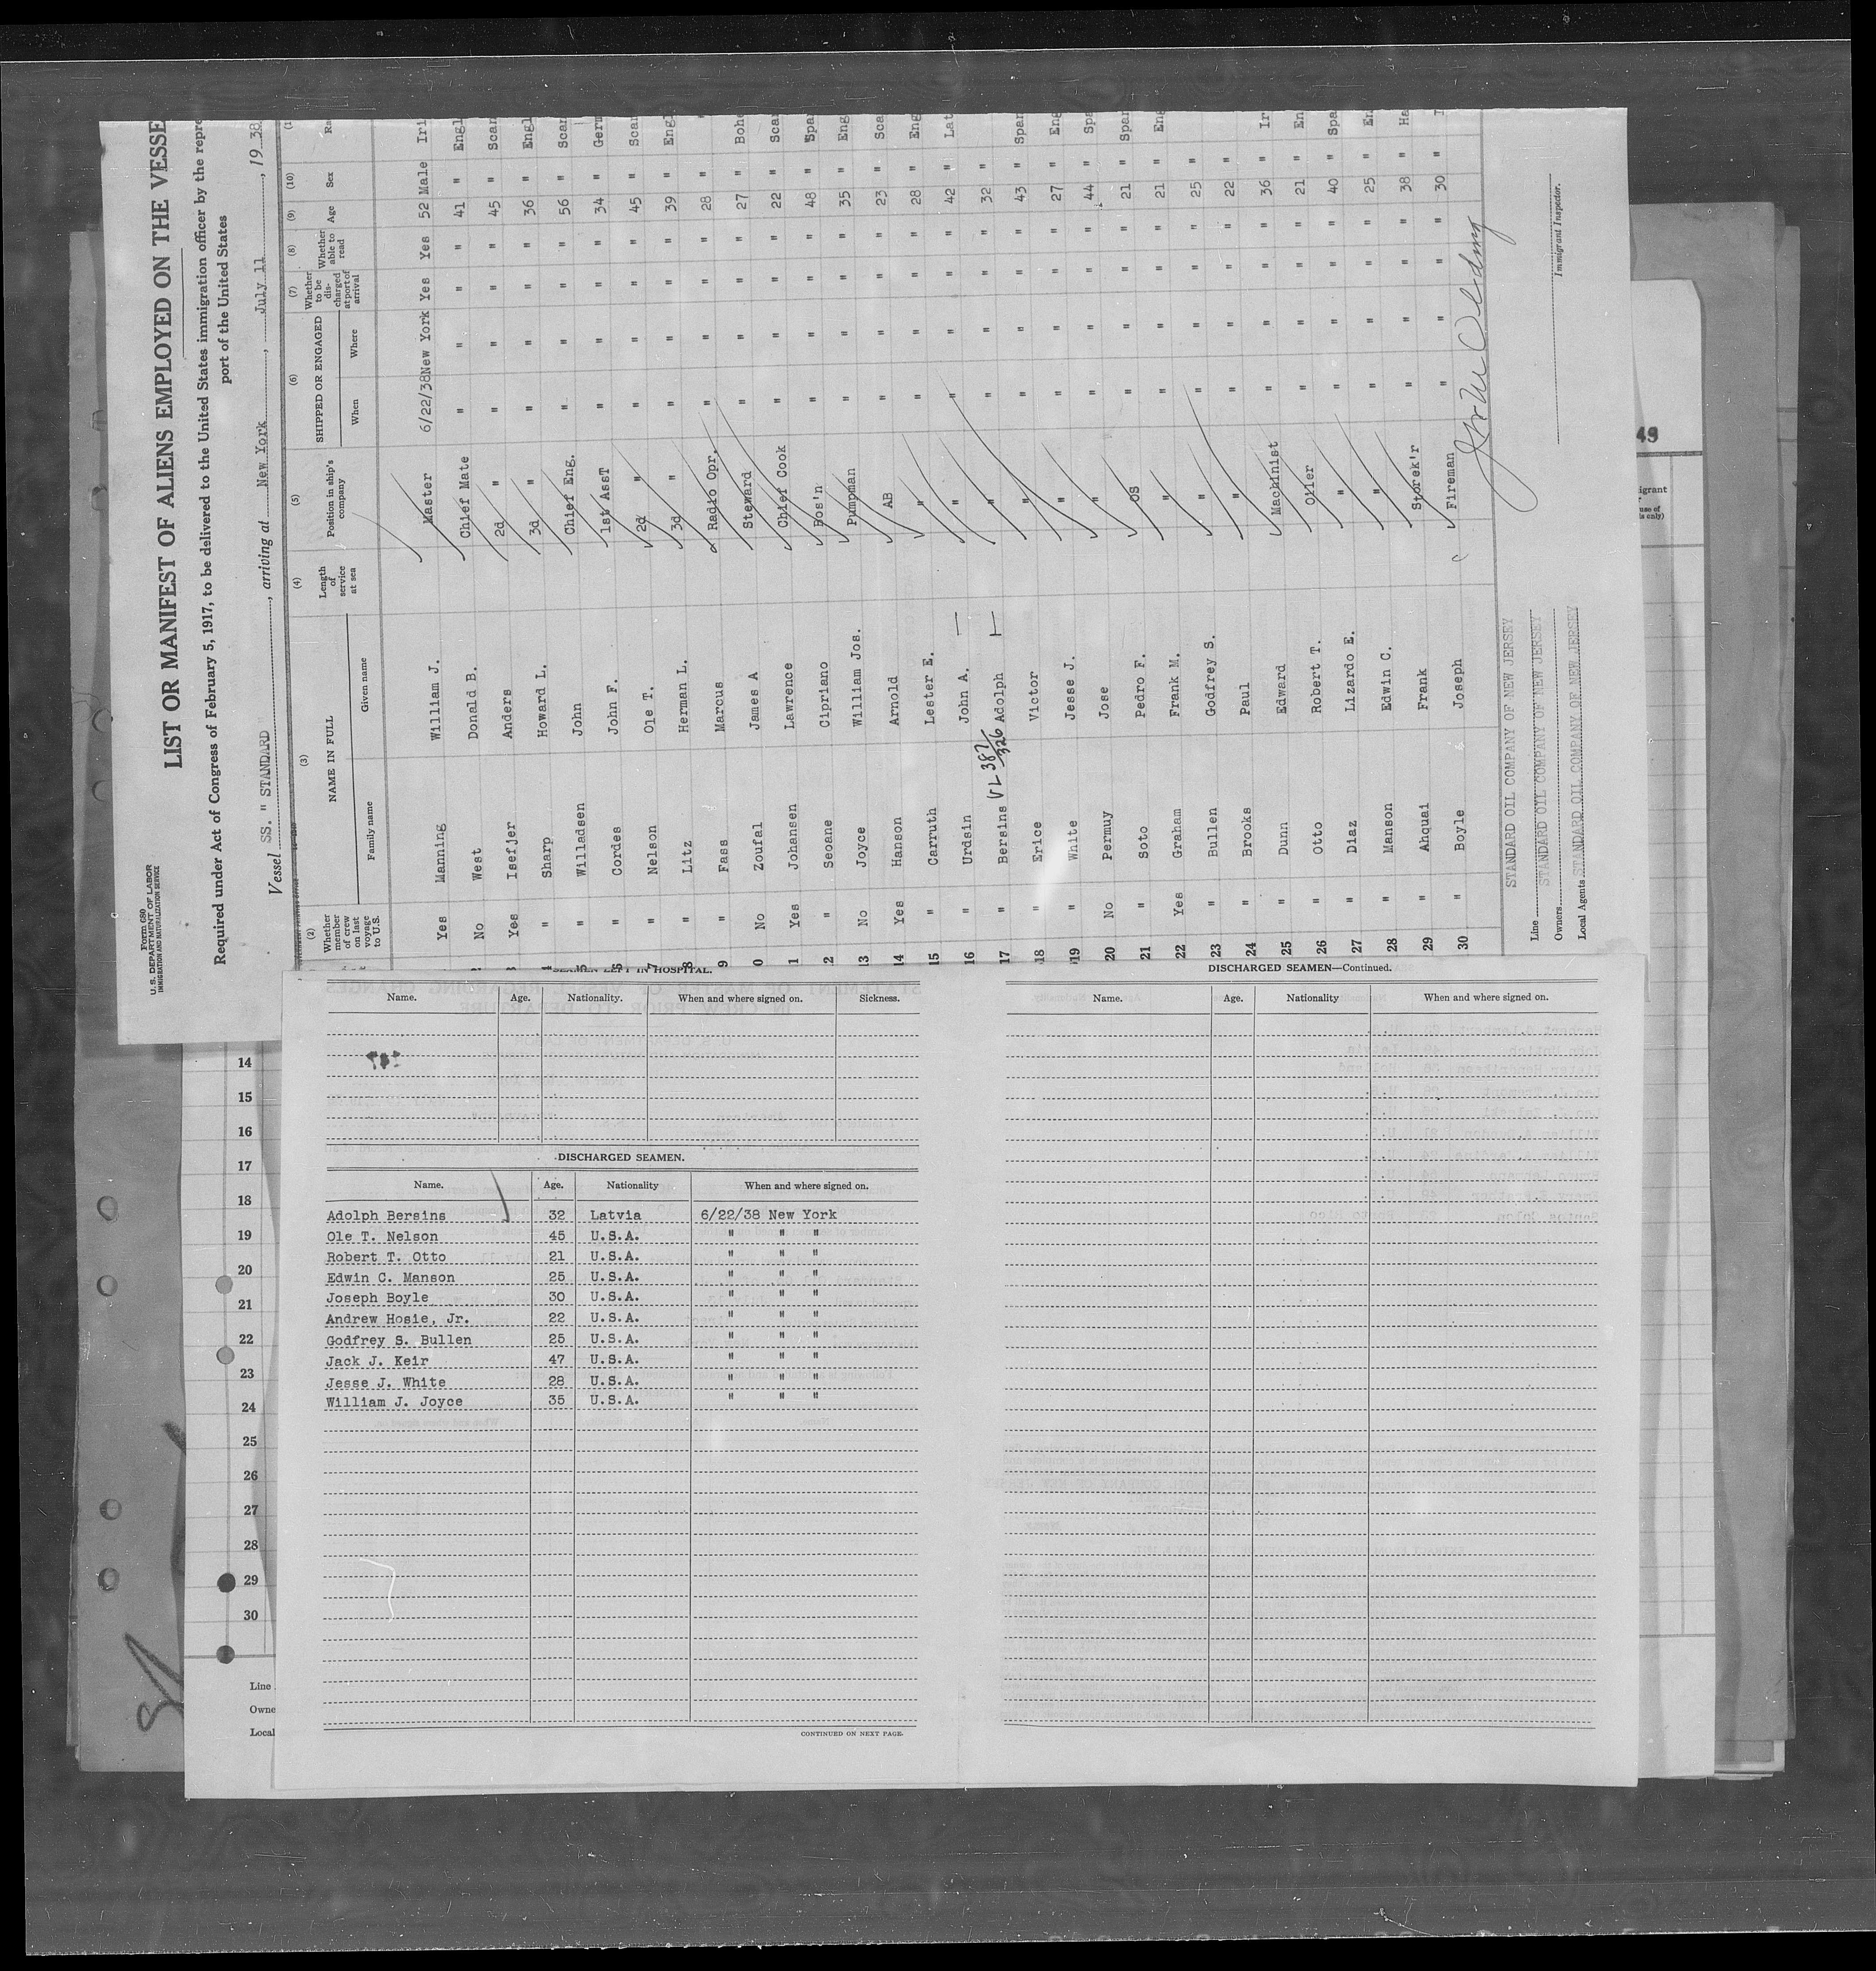 Form 680
U.S. DEPARTMENT OF LABOR
IMMIGRATION AND NATURALIZATION SERVICE
LIST OR MANIFEST OF ALIENS EMPLOYED ON THE VESSE
Required under Act of Congress of February 5, 1917, to be delivered to the United States immigration officer by the repre
port of the United States
Vessel SS. "STANDARD", arriving at New York, July 11, 1938
(2) (3) (4) (5) (6) (7) (8) (9) (10) (1
Whether member of crew on last voyage to U.S. NAME IN FULL Family name Given name Length of service at sea Position in ship's company SHIPPED OR ENGAGED When Where Whether to be discharged at port of arrival Whether able to read Age Sex Ra
Yes Manning William J. Master 6/22/38 New York Yes Yes 52 Male Iri
No West Donald B. Chief Mate " " " " 41 " Engl
Yes Isefjer Anders 2d " " " " " 45 " Scan
" Sharp Howard L. 3d " " " " " 36 " Engl
" Willadsen John Chief Eng. " " " " 56 " Scan
" Cordes John F. 1st AssT " " " " 34 " Germ
" Nelson Ole T. 2d " " " " " 45 " Scan
" Litz Herman L. 3d " " " " " 39 " Engl
" Fass Marcus Radio Opr. " " " " 28 " "
No Zoufal James A Steward " " " " 27 " Bohe
Yes Johansen Lawrence Chief Cook " " " " 22 " Scan
2 " Seoane Cipriano Bos'n " " " " 48 " Spa
13 No Joyce William Jos. Pumpman " " " " 35 " Eng
14 Yes Hanson Arnold AB " " " " 23 " Sca
15 " Carruth Lester E. " " " " " 28 " Eng
16 " Urdsin John A. — " " " " " 42 " Lat
17 " Bersins VL 387/326 Adolph " " " " " 32 "
18 " Erice Victor " " " " " 43 " Span
19 " White Jesse J. " " " " " 27 " Eng
20 No Permuy Jose " " " " " 44 " Spa
21 " Soto Pedro F. OS " " " " 21 " Span
22 Yes Graham Frank M. " " " " " 21 " Eng
23 " Bullen Godfrey S. " " " " " 25 "
24 " Brooks Paul " " " " " 22 "
25 " Dunn Edward Machinist " " " " 36 " Ir
26 " Otto Robert T. Oiler " " " " 21 " En
27 " Diaz Lizardo E. " " " " " 40 " Spa
28 " Manson Edwin C. " " " " " 25 " En
29 " Ahquai Frank Storek'r " " " " 38 " Ha
30 " Boyle Joseph Fireman " " " " 30 "
Line STANDARD OIL COMPANY OF NEW JERSEY
Owners STANDARD OIL COMPANY OF NEW JERSEY
Local Agents STANDARD OIL COMPANY OF NEW JERSEY
Immigrant Inspector.
49
SEAMEN LEFT IN HOSPITAL.
Name. Age. Nationality. When and where signed on. Sickness.
DISCHARGED SEAMEN.
Name. Age. Nationality When and where signed on.
Adolph Bersins 32 Latvia 6/22/38 New York
Ole T. Nelson 45 U.S.A. " " "
Robert T. Otto 21 U.S.A. " " "
Edwin C. Manson 25 U.S.A. " " "
Joseph Boyle 30 U.S.A. " " "
Andrew Hosie, Jr. 22 U.S.A. " " "
Godfrey S. Bullen 25 U.S.A. " " "
Jack J. Keir 47 U.S.A. " " "
Jesse J. White 28 U.S.A. " " "
William J. Joyce 35 U.S.A. " " "
CONTINUED ON NEXT PAGE.
DISCHARGED SEAMEN—Continued.
Name. Age. Nationality When and where signed on.
14
15
16
17
18
19
20
21
22
23
24
25
26
27
28
29
30
Line
Owne
Local